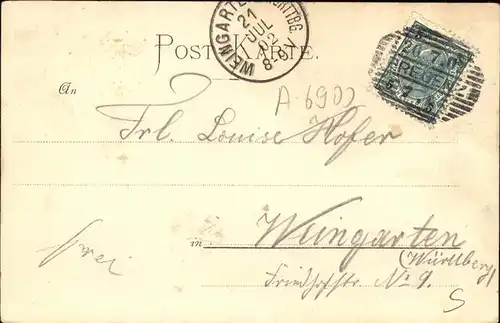 WEINGARTEN WÜRTTBG.
21
JUL
02
8-9V
POSTKARTE.
A-6902
An
Frl. Louise Hofer
frei
in Weingarten
(Württberg)
Friedhofstr. No 9.
S